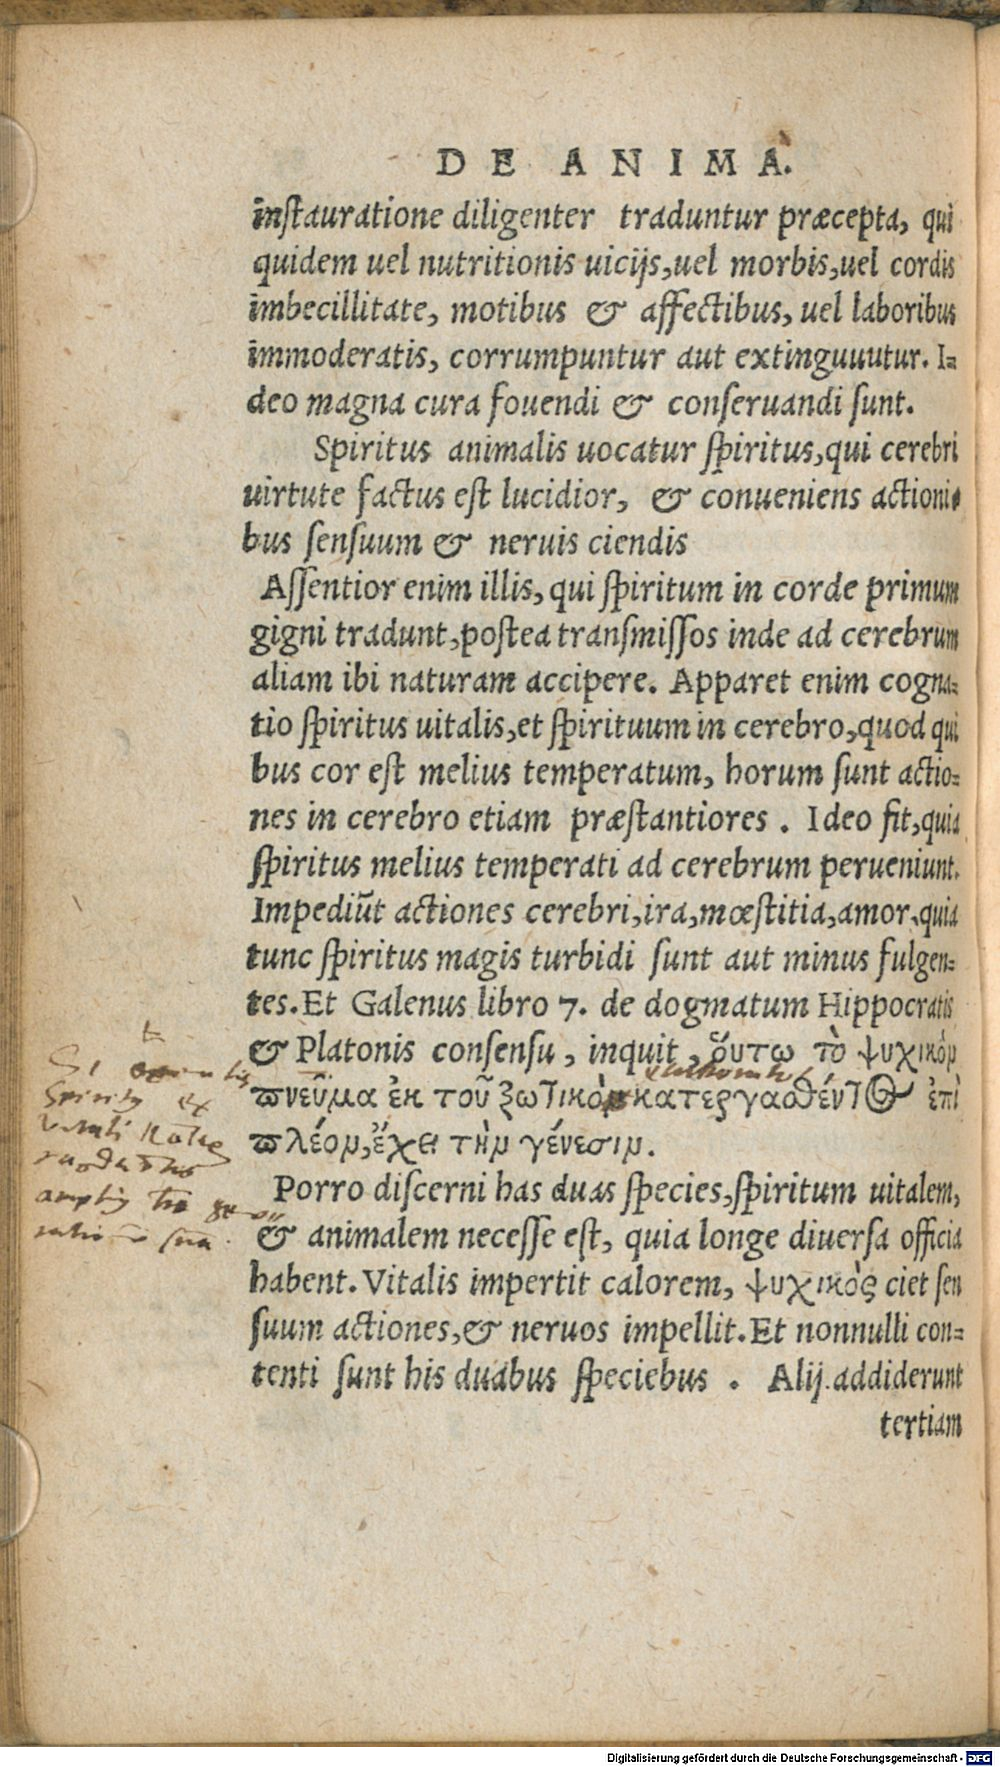 DE ANIMA.
inſtauratione diligenter traduntur præcepta, qui
quidem uel nutritionis uicijs,uel morbis,uel cordis
imbecillitate, motibus & affectibus, uel laboribus
immoderatis, corrumpuntur aut extinguuutur. I=
deo magna cura fouendi & conſeruandi ſunt.
Spiritus animalis uocatur ſpiritus,qui cerebri
uirtute factus eſt lucidior, & conueniens actioni=
bus ſenſuum & neruis ciendis
Aſſentior enim illis, qui ſpiritum in corde primum
gigni tradunt,poſtea tranſmiſſos inde ad cerebrum
aliam ibi naturam accipere. Apparet enim cogna=
tio ſpiritus uitalis,et ſpirituum in cerebro,quod qui
bus cor eſt melius temperatum, horum ſunt actio=
nes in cerebro etiam præſtantiores . Ideo fit,quia
ſpiritus melius temperati ad cerebrum perueniunt.
Impediũt actiones cerebri,ira,mœſtitia,amor,quia
tunc ſpiritus magis turbidi ſunt aut minus fulgen=
tes.Et Galenus libro 7. de dogmatum Hippocratis
& Platonis conſenſu, inquit, ὅυτω τὸ ψυχικὸν
πνεῦμα ἐκ τοῦ ζωτικοῦ κατεργασθέντος ἐπὶ
πλέον,ἔχει τὴν γένεσιν.
Porro diſcerni has duas ſpecies,ſpiritum uitalem,
& animalem neceſſe eſt, quia longe diuerſa officia
habent. Vitalis impertit calorem, ψυχικὸς ciet ſen
ſuum actiones,& neruos impellit.Et nonnulli con=
tenti ſunt his duabus ſpeciebus . Alij addiderunt
tertiam
Si
Spiritus ex
Vitali
ſuã.
Digitalisierung gefördert durch die Deutsche Forschungsgemeinschaft - DFG